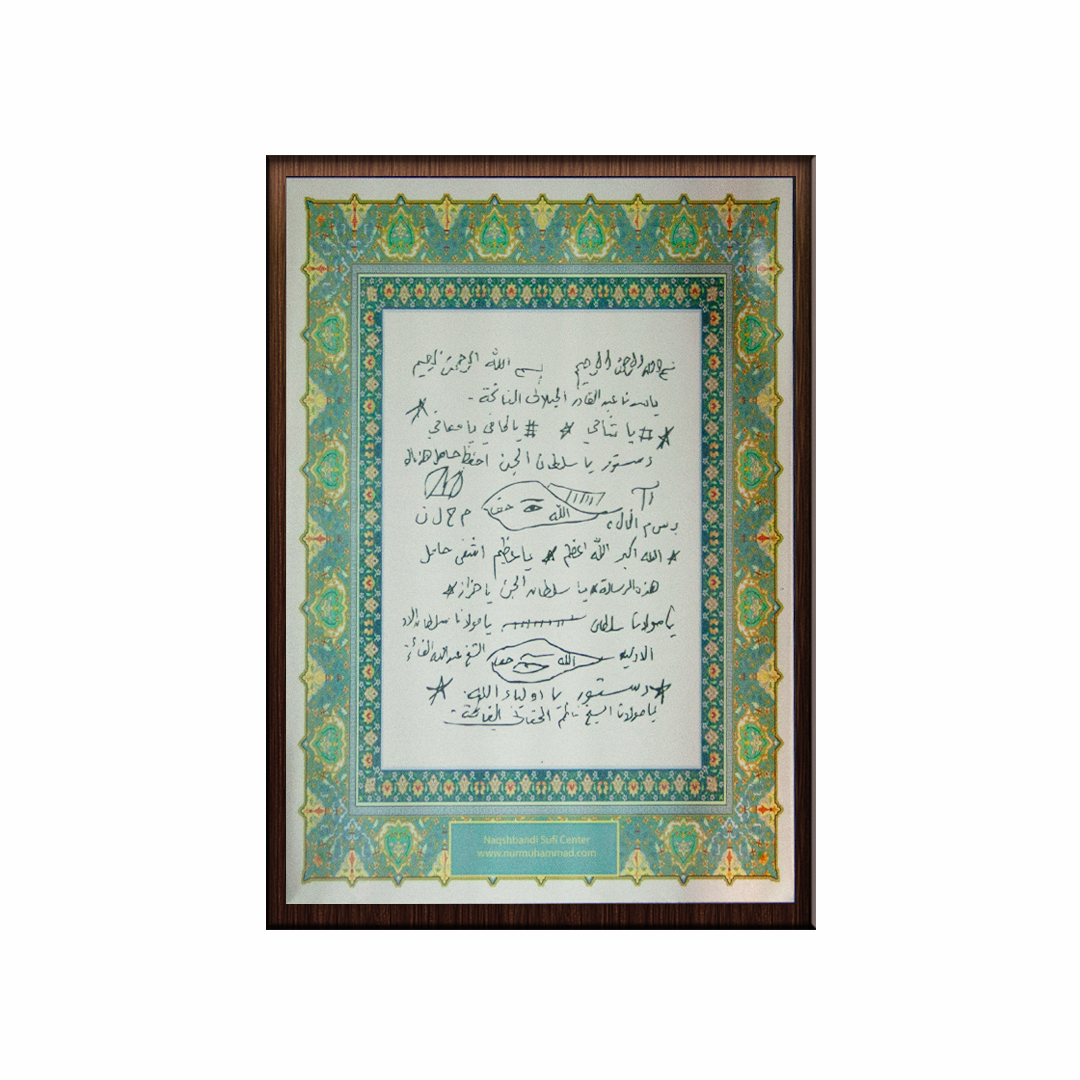 بسم الله الرحمن الرحيم بسم الله الرحمن الرحيم
عبد القادر الجيلاني الفاتحة -
# يا شافي # يا كافي يا معافي
دستور يا سلطان الجن احفظ حامل هذه
الله حق م ح ل ن
# الله اكبر الله اعظم # يا عظيم اشفي حامل
هذه الرسالة # يا سلطان الجن يا حراز #
يا مولانا سلطان يا مولانا سلطان الاو
الله حق الشيخ عبدالله الفائز
دستور يا اولياء الله
يا مولانا الشيخ ناظم الحقاني الفاتحة
Naqshbandi Sufi Center
www.nurmuhammad.com